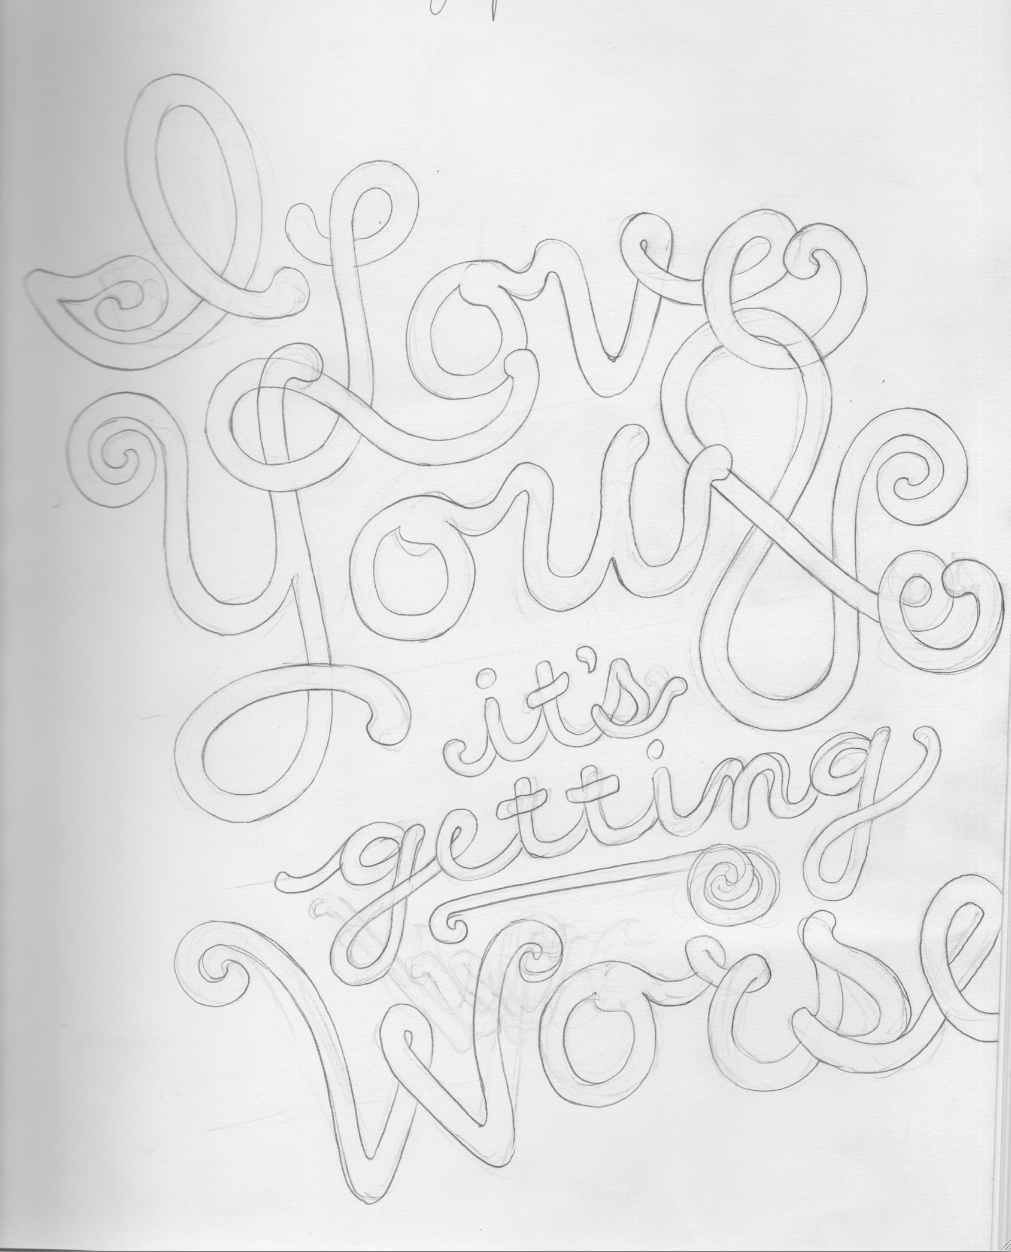 I Love
You &
it's
getting
Worse